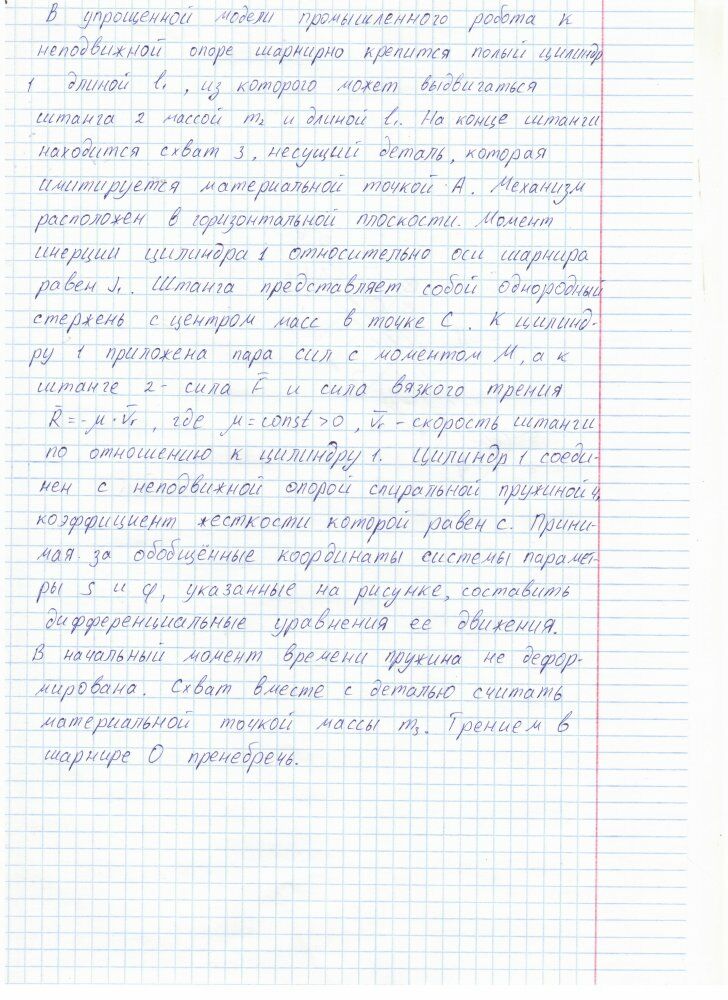 В упрощенной модели промышленного робота к
неподвижной опоре шарнирно крепится полый цилиндр
1 длиной l₁, из которого может выдвигаться
штанга 2 массой m₂ и длиной l₁. На конце штанги
находится схват 3, несущий деталь, которая
имитируется материальной точкой А. Механизм
расположен в горизонтальной плоскости. Момент
инерции цилиндра 1 относительно оси шарнира
равен J₁. Штанга представляет собой однородный
стержень с центром масс в точке С. К цилинд-
ру 1 приложена пара сил с моментом М, а к
штанге 2 - сила F̅ и сила вязкого трения
R̅ = -μ·v̅ᵣ, где μ = const > 0, v̅ᵣ - скорость штанги
по отношению к цилиндру 1. Цилиндр 1 соеди-
нен с неподвижной опорой спиральной пружиной 4,
коэффициент жесткости которой равен с. Прини-
мая за обобщённые координаты системы парамет-
ры s и φ, указанные на рисунке, составить
дифференциальные уравнения ее движения.
В начальный момент времени пружина не дефор-
мирована. Схват вместе с деталью считать
материальной точкой массы m₃. Трением в
шарнире О пренебречь.